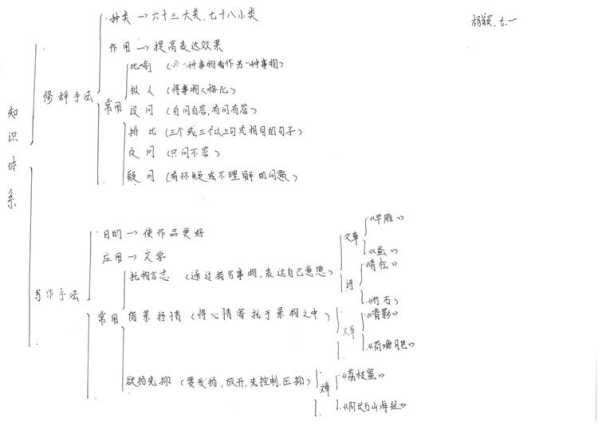 种类→六十三大类,七十八小类
作用→提高表达效果
修辞手法
常用
比喻
拟人(将事物人格化)
设问(自问自答,有问有答)
排比(三个或三个以上句式相同的句子)
反问(只问不答)
疑问(有怀疑或不理解的问题)
知识体系
目的→使作品更好
应用→文学
写作手法
常用
托物言志(通过描写事物,表达自己意愿)
文章
诗
《青松》
《竹石》
借景抒情(将心情寄托于景物之中)
文章
《背影》
《荷塘月色》
欲扬先抑
文章
《荔枝蜜》
《阿长与山海经》